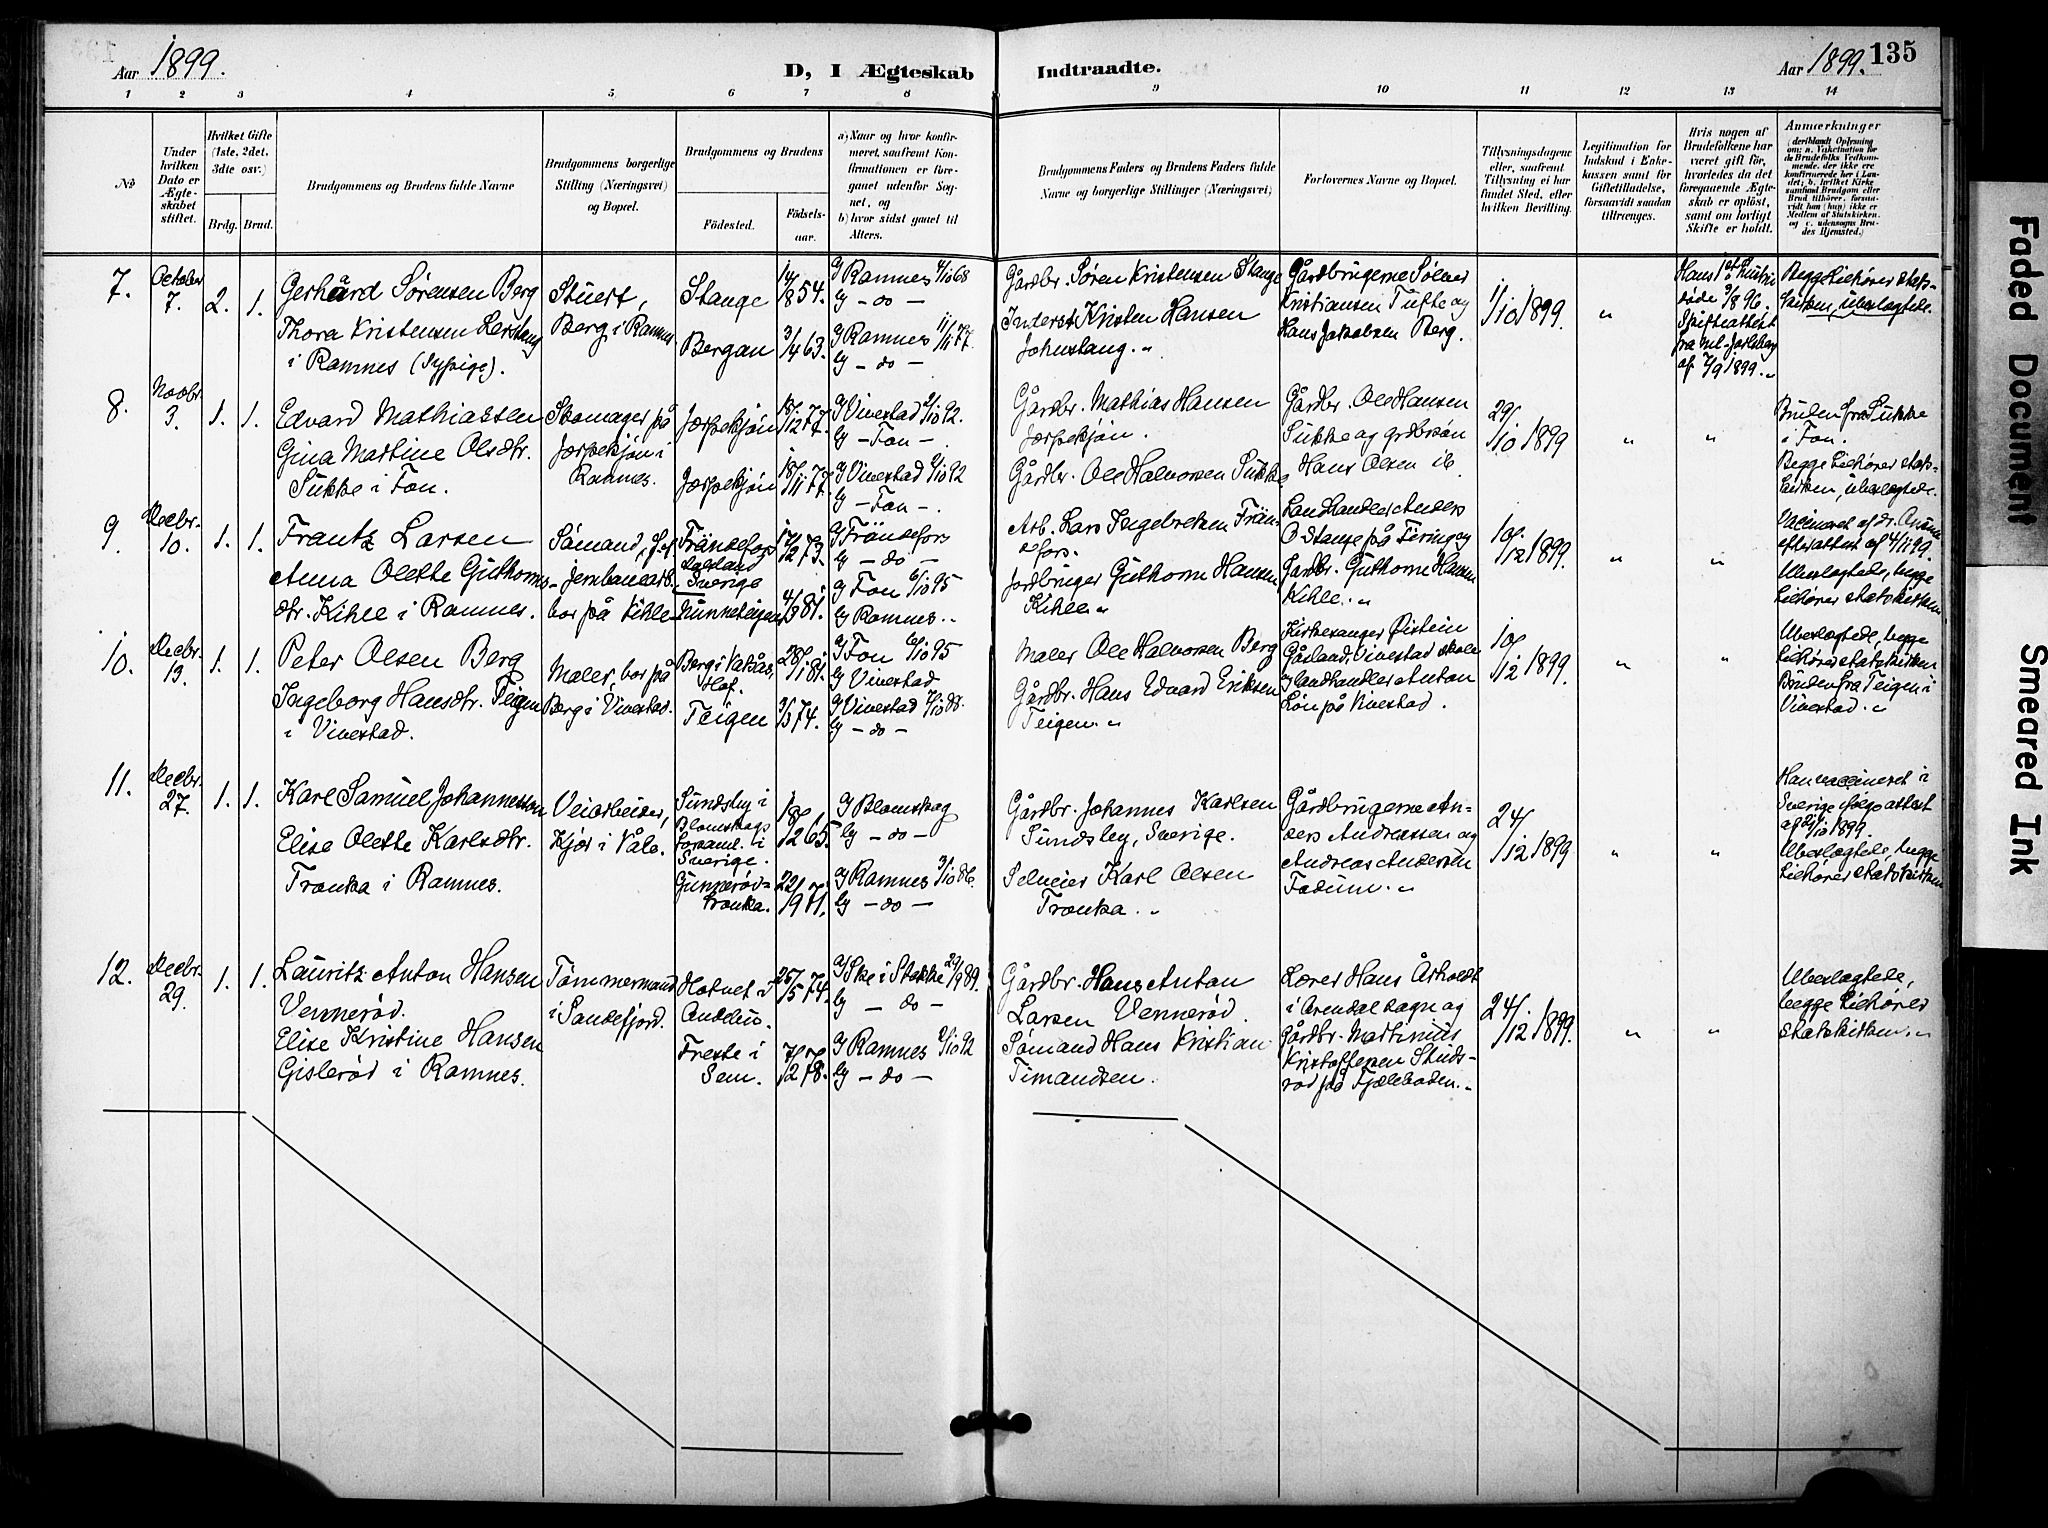 Aar 1899.
D, I Ægteskab Indtraadte.
Aar 1899. 135
1 2 3 4 5 6 7 8 9 10 11 12 13 14
No
Under hvilken Dato er Ægteskabet stiftet.
Hvilket Gifte (1ste, 2det, 3dte osv.)
Brdg. Brud.
Brudgommens og Brudens fulde Navne
Brudgommens borgerlige Stilling (Næringsvei) og Bopæl.
Brudgommens og Brudens
Födested. Födselsaar.
a) Naar og hvor konfirmeret, saafremt Konfirmationen er foregaaet udenfor Sognet, og
b) hvor sidst gaaet til Alters.
Brudgommens Faders og Brudens Faders fulde Navne og borgerlige Stillinger (Næringsvei)
Forlovernes Navne og Bopæl.
Tillysningsdagene eller, saafremt Tillysning ei har fundet Sted, efter hvilken Bevilling.
Legitimation for Indskud i Enkekassen samt for Giftetilladelse, forsaavidt saadan tiltrænges.
Hvis nogen af Brudefolkene har været gift för, hvorledes da det foregaaende Ægteskab er oplöst, samt om lovligt Skifte er holdt.
Anmærkninger
(deriblandt Oplysning om: a. Vakcination for de Brudefolks Vedkommende, der ikke ere konfirmerede her i Landet; b. hvilket Kirkesamfund Brudgom eller Brud tilhörer, forsaavidt han (hun) ikke er Medlem af Statskirken, og c. udensogns Brudes Hjemsted.)
7. October 7. 2. 1.
Gerhard Sørensen Berg
Thora Kristensen
i Ramnes (Sypige).
Stuert,
Berg i Ramnes
Stange 14/8 54.
Bergan 3/4 63.
a) Ramnes 4/10 68
b) - do -
a) Ramnes 11/11 77.
b) - do -
Gårdbr. Søren Kristensen Stange
Inderst Kristen Hansen
Gårdbrugerne Sølver
Kristiansen Tufte og
Hans Jakobsen Berg.
1/10 1899.
"
Hans 1st hustru
døde 9/8 96.
Skifteattest
fra
af 7/9 1899. "
Begge tilhører stats-
kirken, ubeslægtede.
8. Novbr. 3. 1. 1.
Edvard Mathiassen
Gina Martine Olsdtr.
Sukke i Fon.
Skomager på
Jærpekjøn i
Ramnes.
Jærpekjøn 18/12 77.
Jærpekjøn 18/11 77.
a) Vivestad 2/10 92.
b) - Fon -.
a) Vivestad 2/10 92
b) - Fon -.
Gårdbr. Mathias Hansen
Jærpekjøn.
Gårdbr. Ole Halvorsen Sukke
Gårdbr. Ole Hansen
Sukke og grdbrsøn
Hans Olsen ib.
29/10 1899
" "
Bruden fra Sukke
i Fon.
Begge tilhører stats-
kirken, ubeslægtede.
9. Decbr. 10. 1. 1.
Frantz Larsen
Anna Olette Guthorms-
dtr. Kihle i Ramnes.
Sømand,
jernbanearb.
bor på Kihle
Frändefors
Dalsland
Sverige 73.
4/3 81.
a) Frändefors
b) - do -
a) Fon 6/10 95
b) Ramnes.
Arb. Lars Ingebretsen Frän-
defors.
Jordbruger Guthorm Hansen
Kihle. "
Landhandler Anders
O. Stange på
Gårdbr. Guthorm Hansen
Kihle. "
10/12 1899.
" "
Vaccineret af dr.
efter attest af 4/11 99.
Ubeslægtede, begge
tilhører statskirken
10. Decbr. 13. 1. 1.
Peter Olsen Berg
Ingeborg Hansdtr. Teigen
i Vivestad.
Maler, bor på
Berg i Vivestad.
Berg i Vatås,
Hof. 28/1 81.
Teigen 3/3 74.
a) Fon 6/10 95
b) Vivestad
a) Vivestad 7/10 88.
b) - do -
Maler Ole Halvorsen Berg
Gårdbr. Hans Edvard Eriksen
Teigen. "
Kirkesanger Øistein
Gåsland, Vivestad skole
og landhandler Anton
Løn på Vivestad.
10/12 1899.
" "
Ubeslægtede, begge
tilhører statskirken
Bruden fra Teigen i
Vivestad. "
11. Decbr. 27. 1. 1.
Karl Samuel Johannesson
Elise Olette Karlsdtr.
Tranka i Ramnes.
Veiarbeider,
Kjær i Våle.
Sundsby i
Blomskogs
forsaml. i
Sverige. 18/12 65.
Gunnerød-
tranka. 22/9 71.
a) Blomskog
b) - do -
a) Ramnes 3/10 86.
b) - do -
Gårdbr. Johannes Karlsen
Sundsby, Sverige.
Selveier Karl Olsen
Tranka. "
Gårdbrugerne An-
ders Andreassen og
Andreas Andersen
Fadum. "
24/12 1899
" "
Han vaccineret i
Sverige ifølge attest
af 1899.
Ubeslægtede, begge
tilhører statskirken
12. Decbr. 29. 1. 1.
Lauritz Anton Hansen
Vennerød.
Elise Kristine Hansen
Gislerød i Ramnes.
Tømmermand
i Sandefjord.
Hotvet i
Andebu. 25/5 74.
Freste i
Sem. 7/12 78.
a) Ske i Stokke 29/9 89.
b) - do -
a) Ramnes 2/10 92
b) - do -
Gårdbr. Hans Anton
Larsen Vennerød.
Sømand Hans Kristian
Timandsen.
Lærer Hans Århold
i Arendal sogn og
Gårdbr. Martinius
Kristoffersen Studs-
rød på Fjæleboden. "
24/12 1899.
" "
Ubeslægtede,
begge tilhører
statskirken. "
Faded Document
Smeared Ink